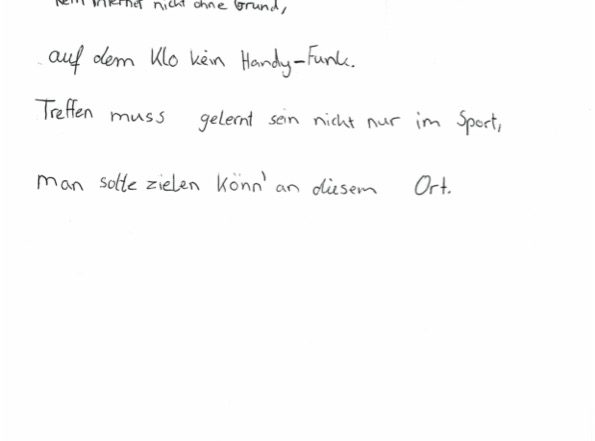 Kein Internet nicht ohne Grund,
auf dem Klo kein Handy-Funk.
Treffen muss gelernt sein nicht nur im Sport,
man sollte zielen könn' an diesem Ort.